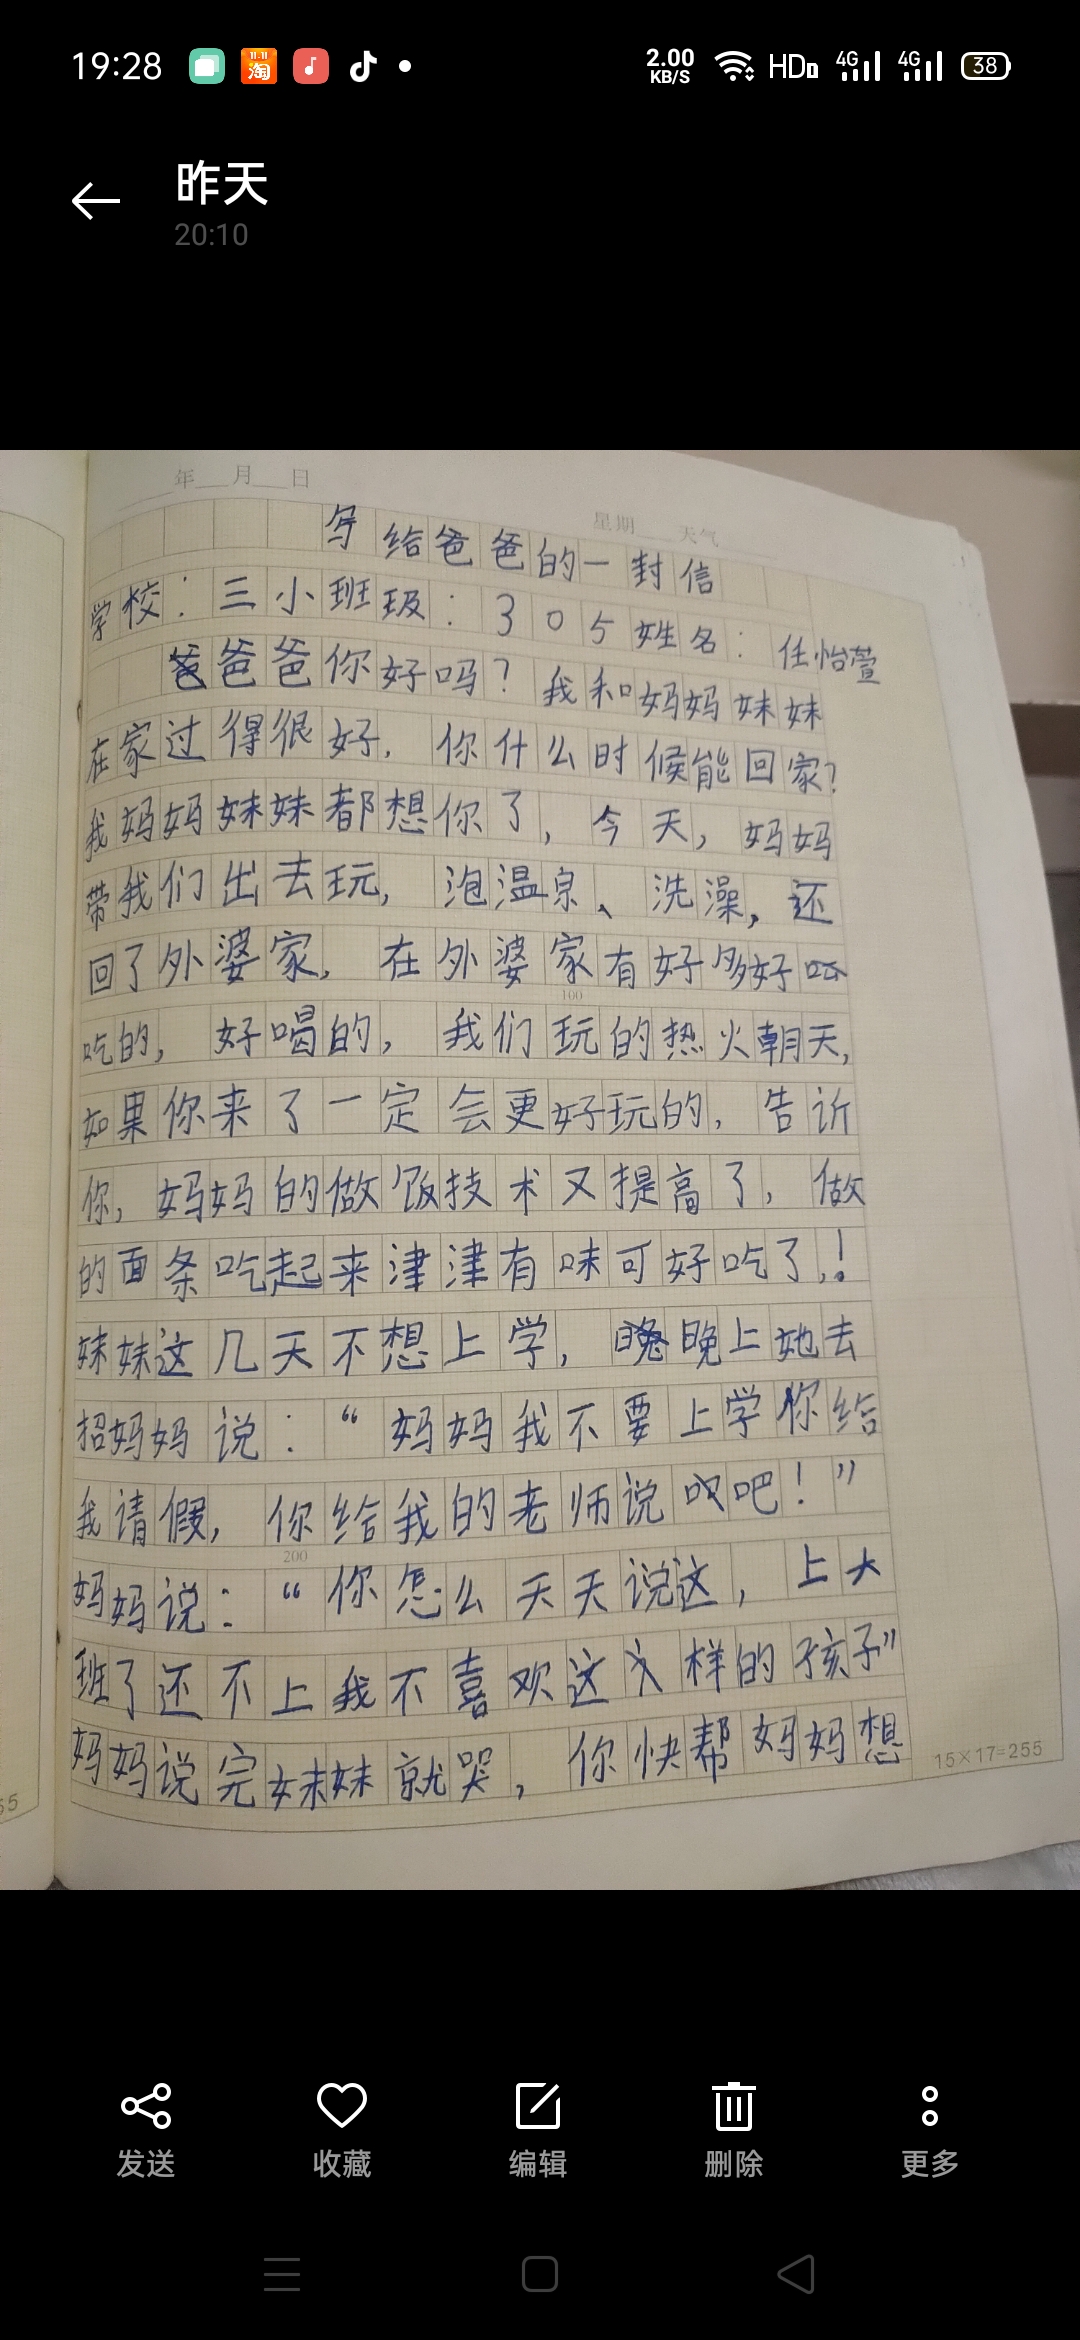 19:28
2.00
KB/S
HD
4G
4G
38
昨天
20:10
年 月 日
星期 天气
写给爸爸的一封信
学校：三小班级：305姓名：任怡萱
爸爸你好吗？我和妈妈妹妹
在家过得很好，你什么时候能回家？
我妈妈妹妹都想你了，今天，妈妈
带我们出去玩，泡温泉、洗澡，还
回了外婆家，在外婆家有好多好
吃的，好喝的，我们玩的热火朝天，
如果你来了一定会更好玩的，告诉
你，妈妈的做饭技术又提高了，做
的面条吃起来津津有味可好吃了！
100
妹妹这几天不想上学，晚上她去
招妈妈说：“妈妈我不要上学你给
我请假，你给我的老师说吧！”
200
妈妈说：“你怎么天天说这，上大
班了还不上我不喜欢这样的孩子”
妈妈说完妹妹就哭，你快帮妈妈想
15×17=255
55
发送
收藏
编辑
删除
更多